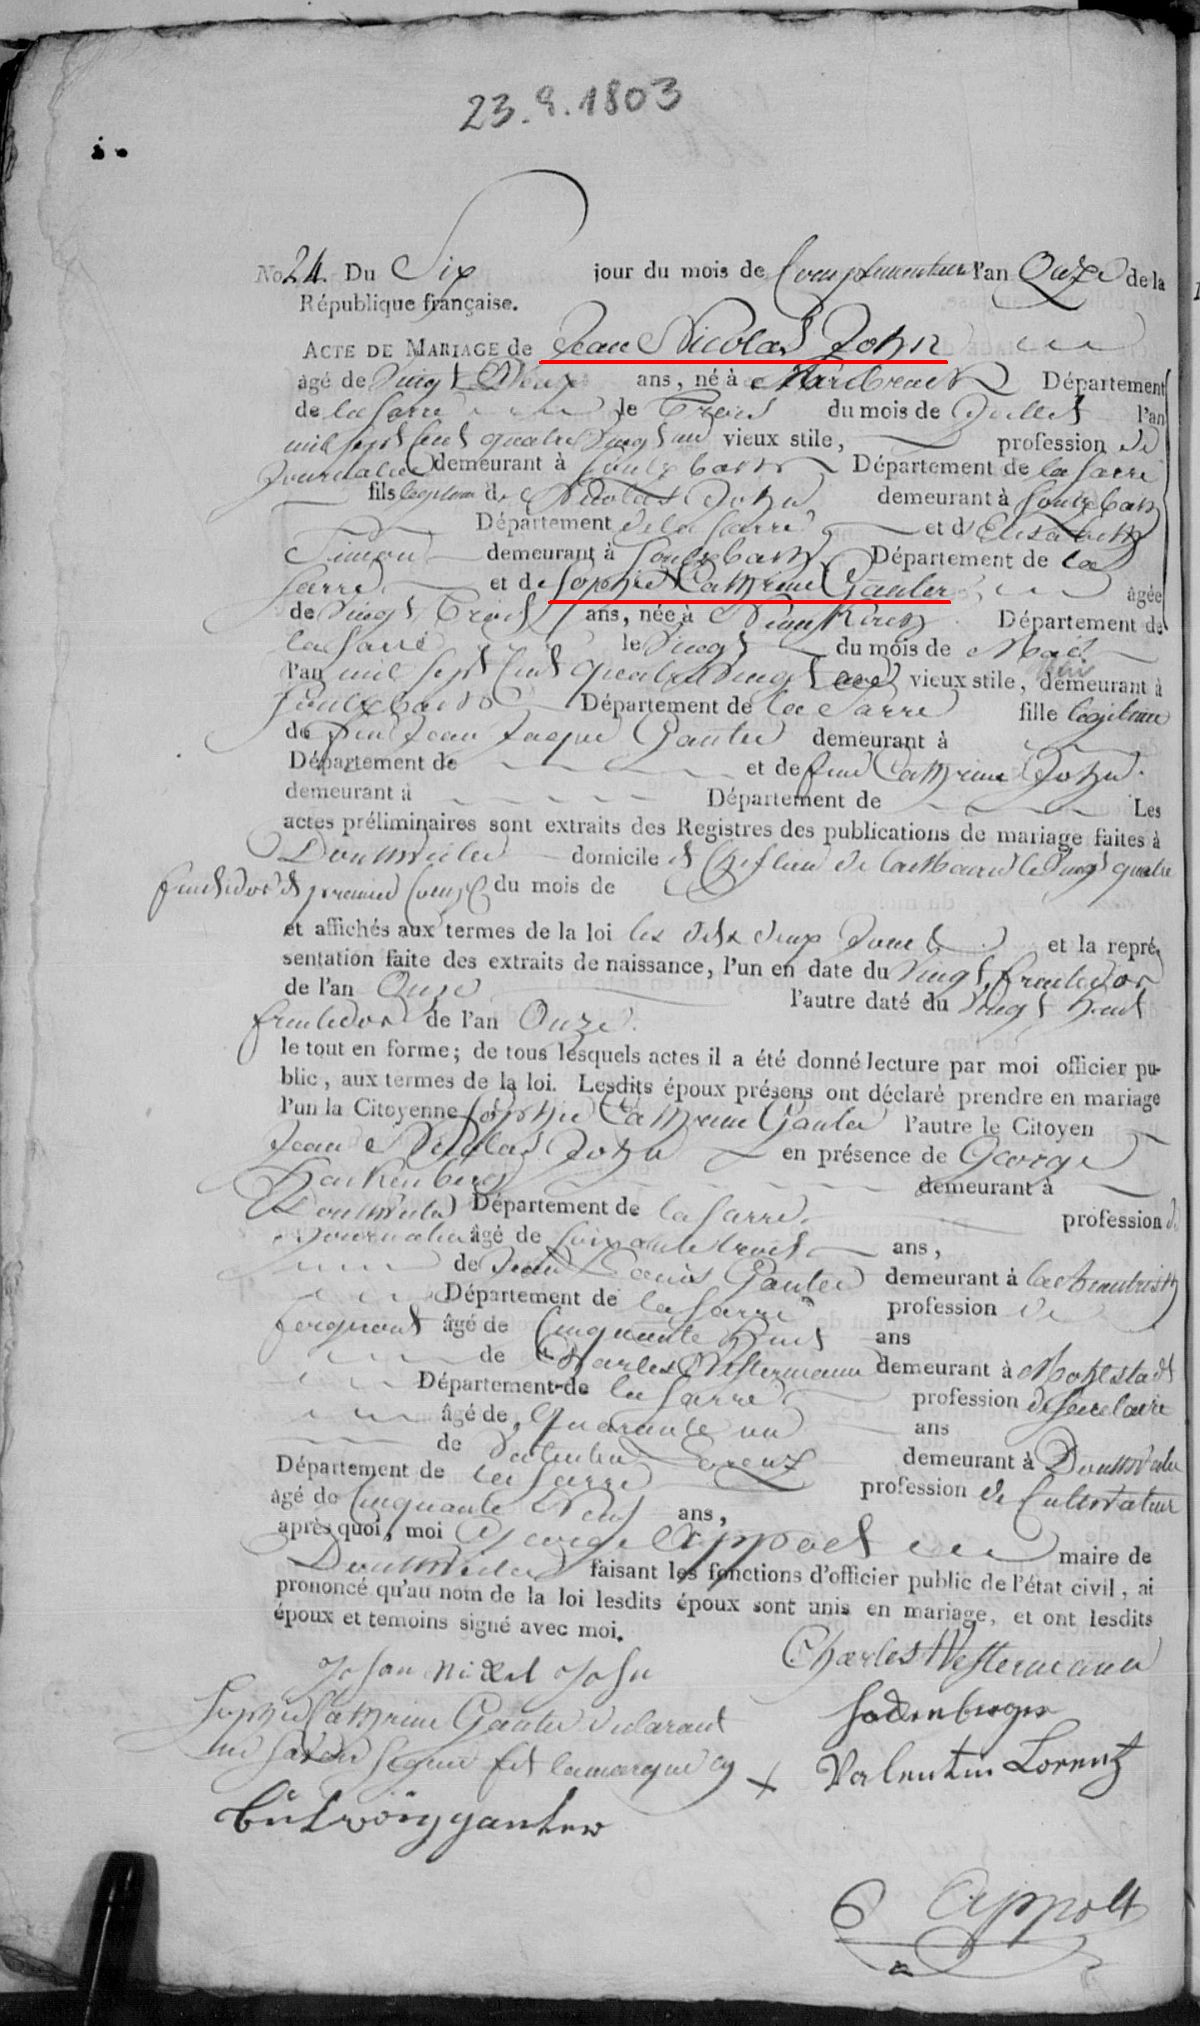 23.9.1803
No 24. Du Six jour du mois de l'an Onze de la
République française.
ACTE DE MARIAGE de Jean Nicolas John
âgé de Vingt Deux ans, né à Département
de la Sarre le Trois du mois de Juillet l'an
mil sept Cent quatre Vingt un vieux stile, profession de
Journalier demeurant à Soulzbach Département de la Sarre
fils legitime de Nicolas John demeurant à Soulzbach
Département de la Sarre et d'Elisabeth
Simon demeurant à Soulzbach Département de la
Sarre et de Sophie Cathrine Gauter âgée
de Vingt Trois ans, née à Département de
la Sarre le Vingt du mois de
l'an mil sept Cent quatre Vingt vieux stile, demeurant à
Soulzbach Département de la Sarre fille legitime
de feu Jean Jaque Gauter demeurant à
Département de et de feue Cathrine John.
demeurant à Département de Les
actes préliminaires sont extraits des Registres des publications de mariage faites à
Doutweiler domicile et Cheflieu de la Mairie le Vingt quatre
fructidor et premier du mois de
et affichés aux termes de la loi les dits deux Jours et la repré-
sentation faite des extraits de naissance, l'un en date du Vingt fructidor
de l'an Onze l'autre daté du Vingt huit
fructidor de l'an Onze.
le tout en forme; de tous lesquels actes il a été donné lecture par moi officier pu-
blic, aux termes de la loi. Lesdits époux présens ont déclaré prendre en mariage
l'un la Citoyenne Sophie Cathrine Gauter l'autre le Citoyen
Jean Nicolas John en présence de George
demeurant à
Doutweiler Département de la Sarre profession de
Journalier âgé de Soixante trois ans,
de Jean Louis Gauter demeurant à
Département de la Sarre profession de
forgeront âgé de Cinquante huit ans
de Charles Westermann demeurant à Mohlstadt
Département de la Sarre profession de Secretaire
âgé de Quarante un ans
de Valentin Lorenz demeurant à Doutweiler
Département de la Sarre profession de Cultivateur
âgé de Cinquante Neuf ans,
après quoi, moi George Appolt maire de
Doutweiler faisant les fonctions d'officier public de l'état civil, ai
prononcé qu'au nom de la loi lesdits époux sont unis en mariage, et ont lesdits
époux et temoins signé avec moi.
Johan Nickel John Charles Westermann
Sophie Cathrine Gauter declarant
ne savoir signer fit la marque Valentin Lorentz
G Appolt